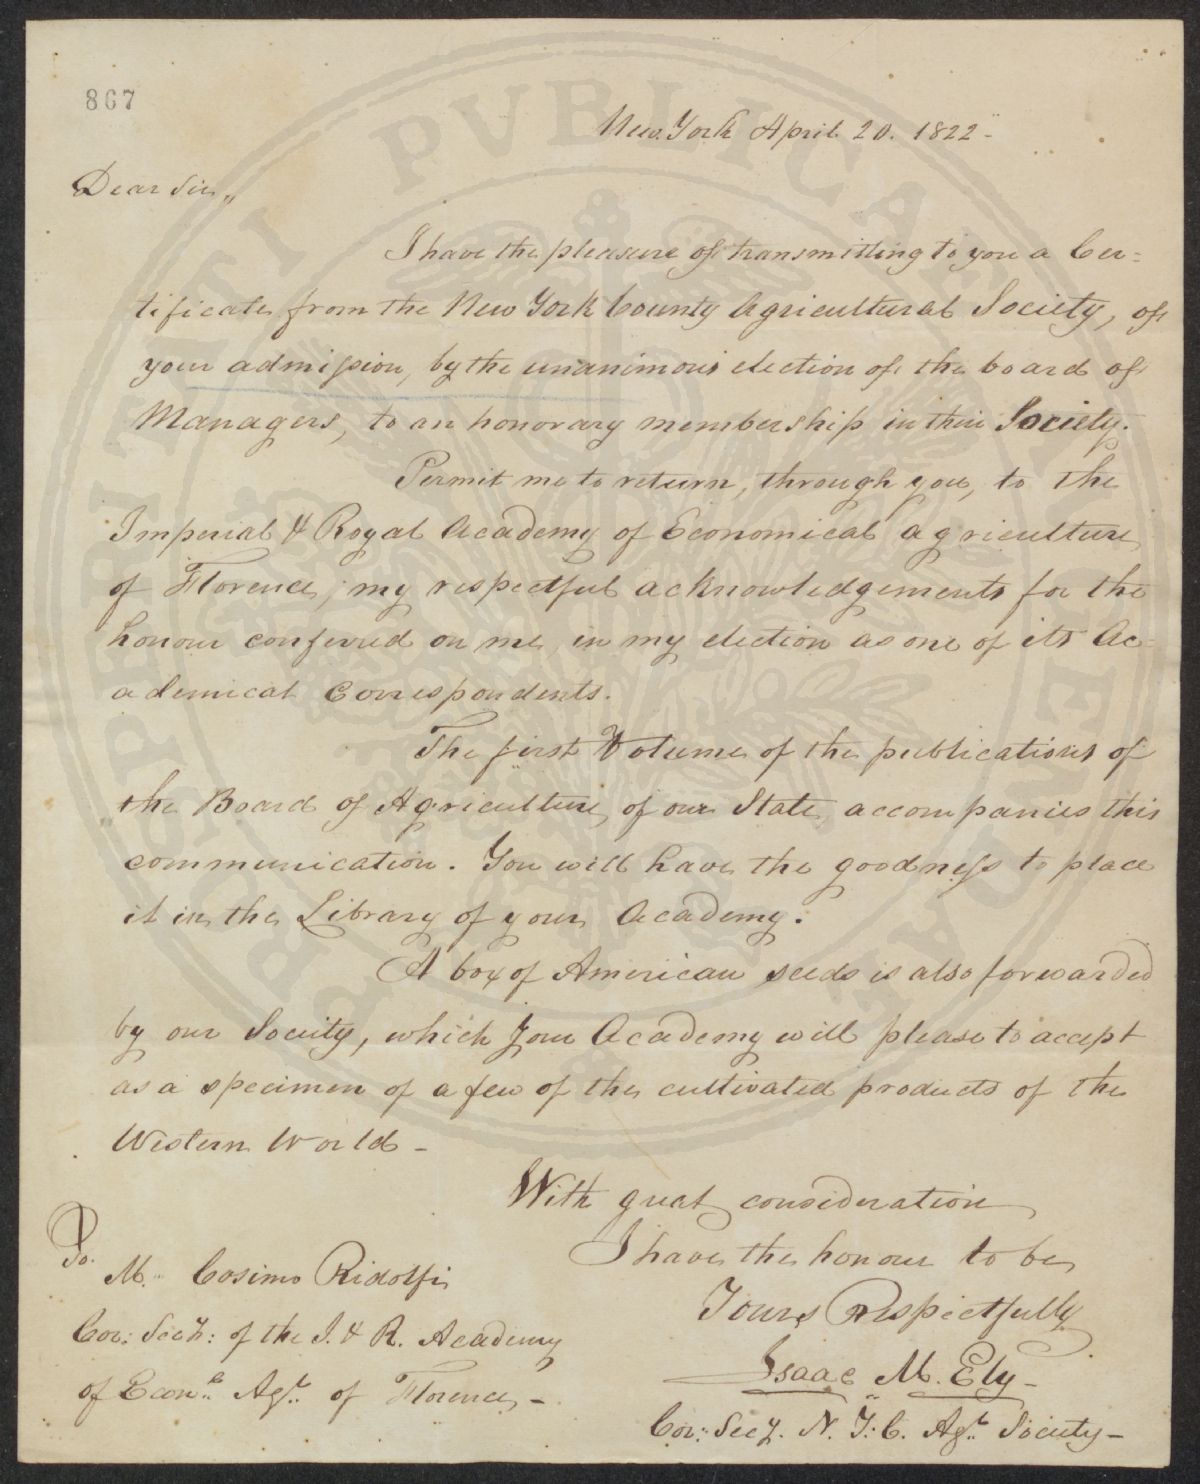 867
New York April 20. 1822-
Dear Sir,,
I have the pleasure of transmitting to you a Cer=
tificate from the New York County Agricultural Society, of
your admission, by the unanimous election of the board of
Managers, to an honorary membership in their Society.
Permit me to return, through you, to the
Imperial & Royal Academy of Economical agriculture
of Florence, my respectful acknowledgements for the
honour conferred on me, in my election as one of its Ac-
ademical Correspondents.
The first Volume of the publications of
the Board of Agriculture, of our State, accompanies this
communication. You will have the goodness to place
it in the Library of your Academy.
A box of American seeds is also forwarded
by our Society, which your Academy will please to accept
as a specimen of a few of the cultivated products of the
Western World -
With great consideration
I have the honour to be
Yours Respectfully
Isaac M. Ely-
Cor: Secy. N. Y. C. Agl. Society-
To.
M. Cosimo Ridolfi
Cor: Secy: of the I. & R. Academy
of Econl. Agr. of Florence, -